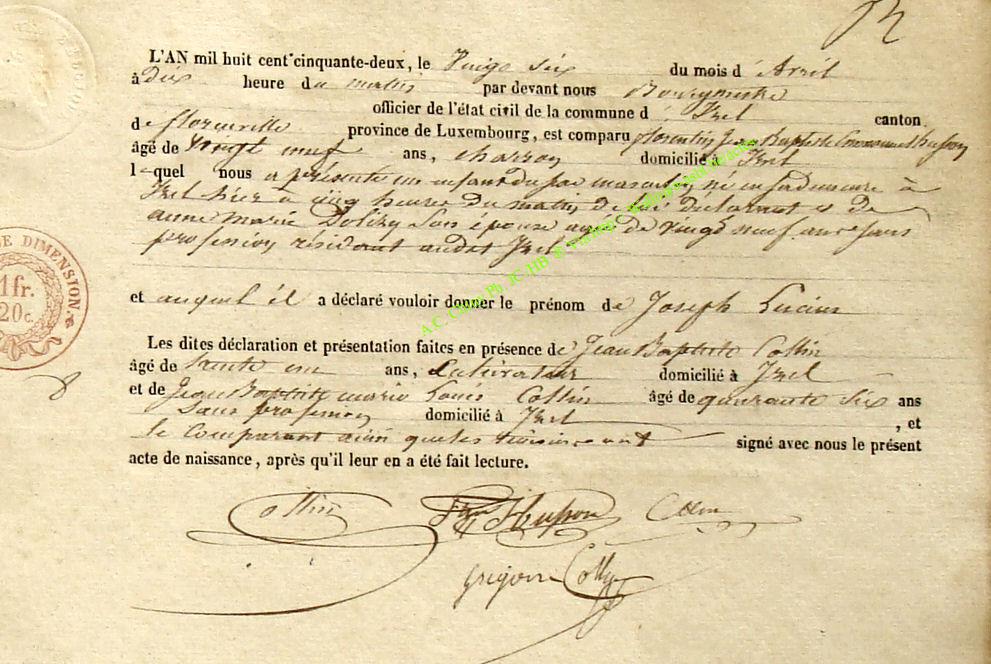 L'AN mil huit cent cinquante-deux, le Vingt Six du mois d' Avril
à dix heure du matin par devant nous Bourgmestre
officier de l'état civil de la commune d' Izel canton
de florenville province de Luxembourg, est comparu florentin Jean Baptiste husson
âgé de Vingt neuf ans, charron domicilié à Izel
lequel nous a présenté un enfant du sexe masculin, né en sa demeure à
Izel hier à cinq heures du matin, de lui déclarant & de
anne marie son épouse agée de vingt neuf ans sans
profession résidant audit Izel
et auquel il a déclaré vouloir donner le prénom de Joseph Lucien
Les dites déclaration et présentation faites en présence de Jean Baptiste Collin
âgé de trente un ans, cultivateur domicilié à Izel
et de Jean Baptiste marie Louis Collin âgé de quarante six ans
sans profession domicilié à Izel , et
le comparant ainsi que les témoins ont signé avec nous le présent
acte de naissance, après qu'il leur en a été fait lecture.
Collin Husson Collin
Grégoire Collin
E DIMENSION.
1 fr.
20 c.